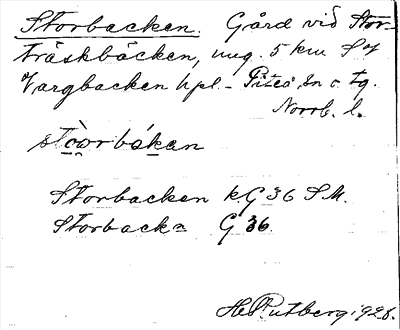 Storbacken. Gård vid Stor-
träskbäcken, ung. 5 km S of
Vargbacken hpl. - Piteå sn o. tg.
Norrb. l.
stòorbákan
Storbacken kG 36 SM.
Storbacka G 36.
H. Rutberg 1928.